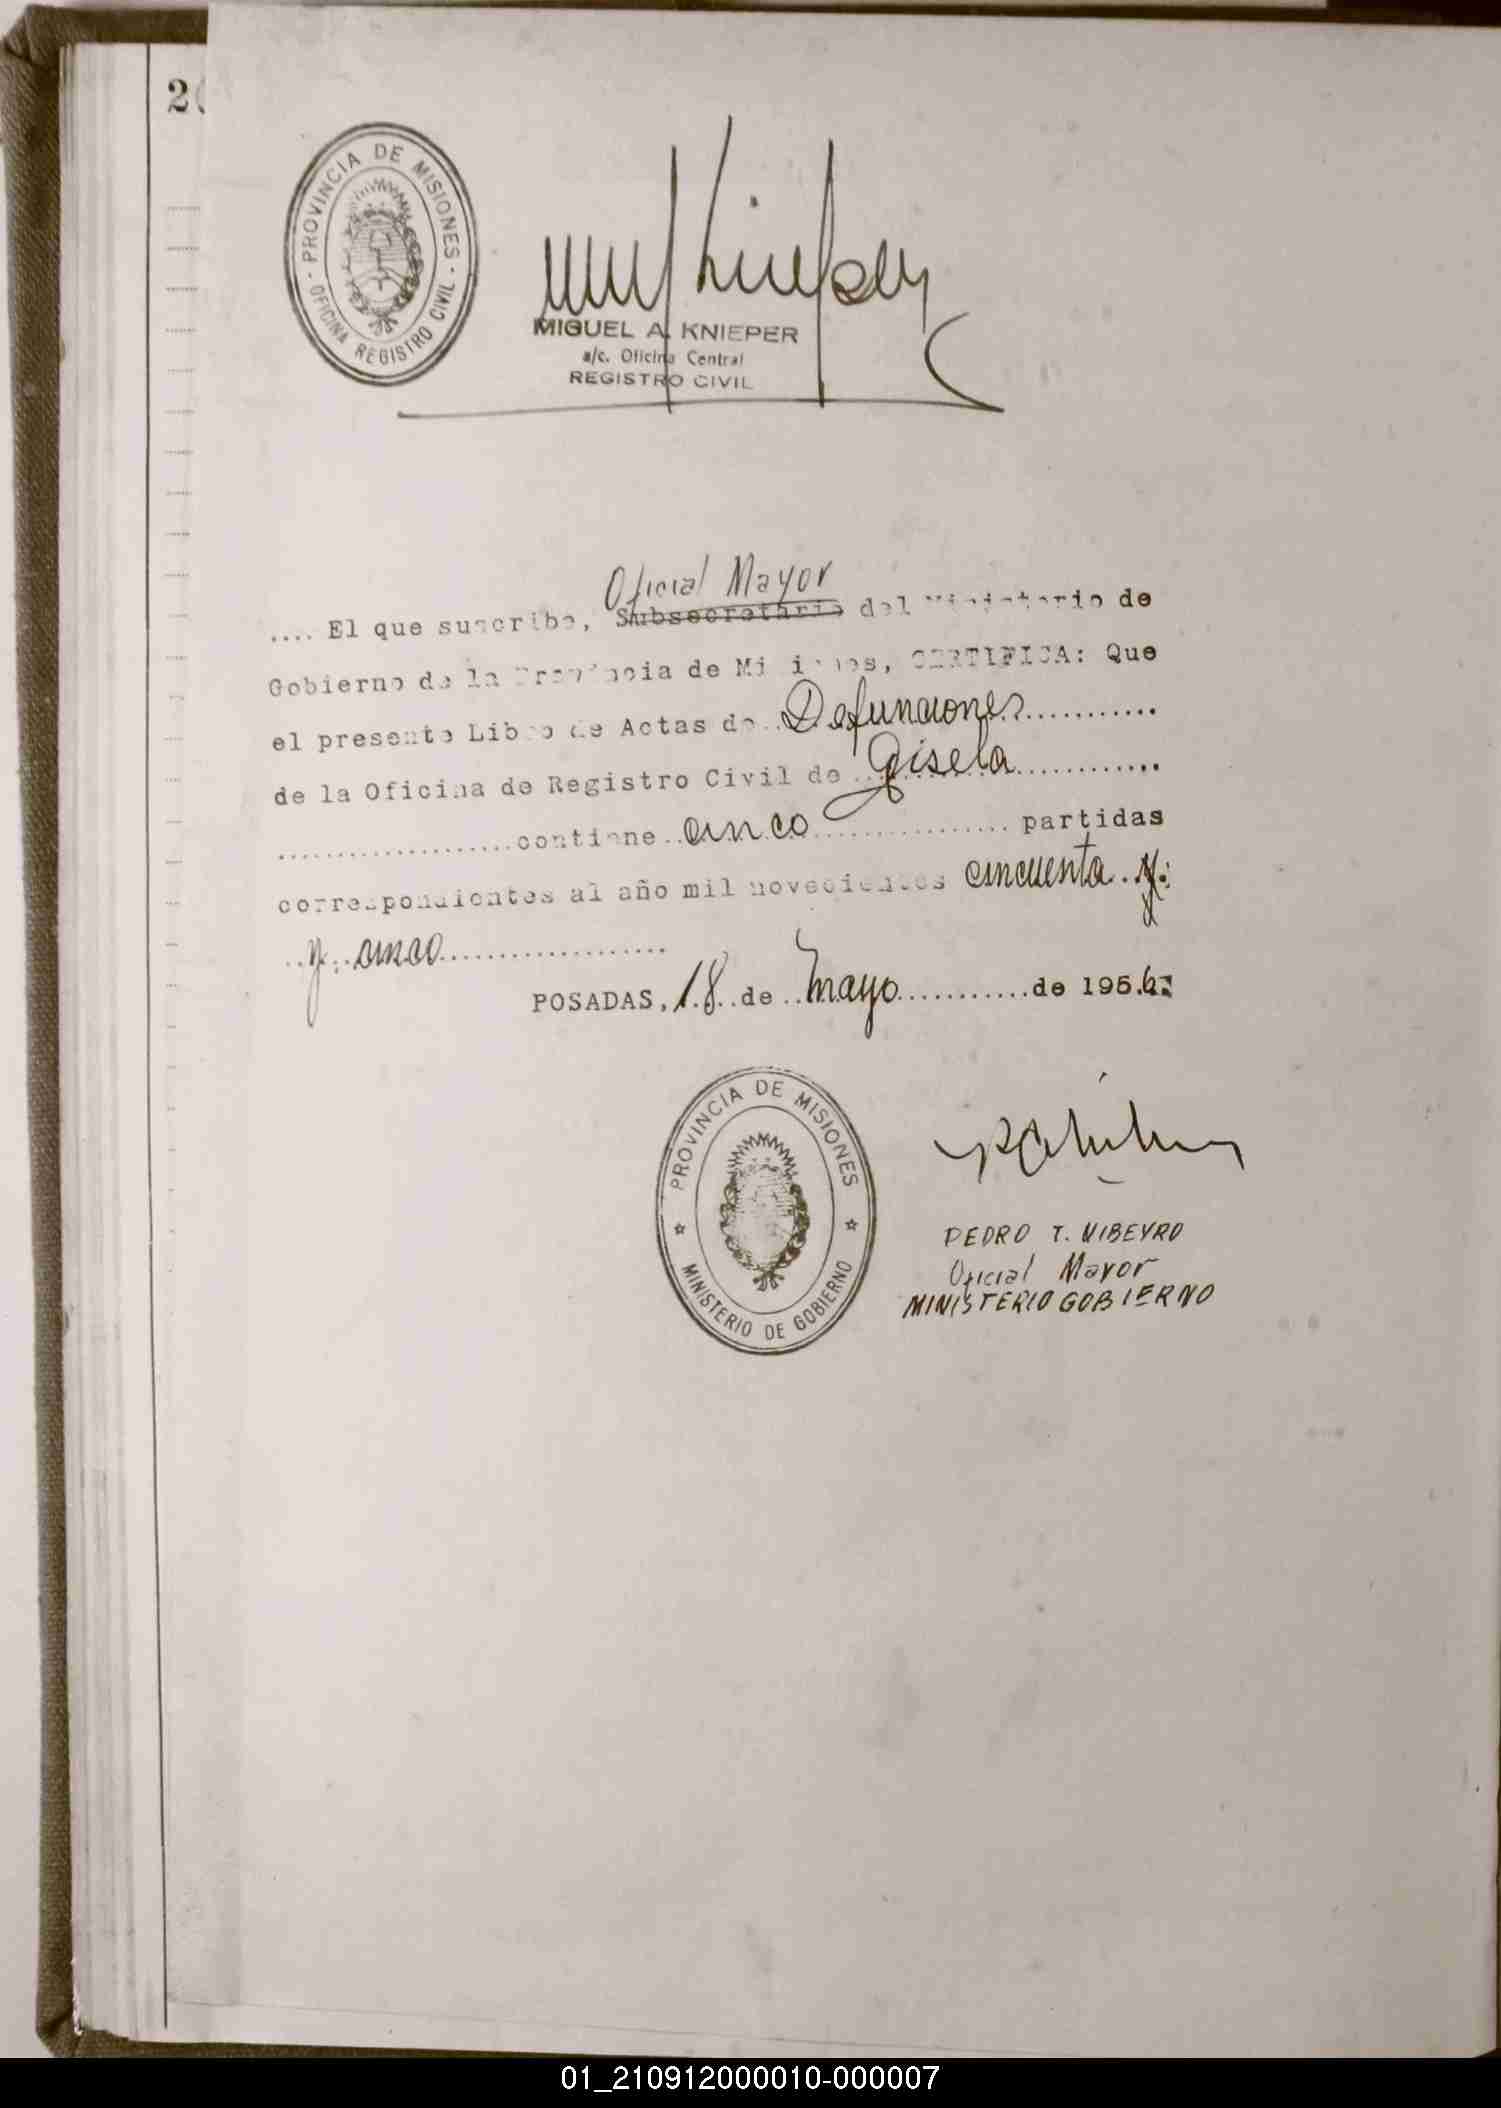 2
PROVINCIA DE MISIONES
OFICINA REGISTRO CIVIL
MIGUEL A. KNIEPER
a/c. Oficina Central
REGISTRO CIVIL
Oficial Mayor
.... El que suscribe, Subsecretario del Ministerio de
Gobierno de la Provincia de Misiones, CERTIFICA: Que
el presente Libro de Actas de Defunciones
de la Oficina de Registro Civil de Gisela
contiene cinco partidas
correspondientes al año mil novecientos cincuenta y
y cinco
POSADAS, 18 de mayo de 1956
PROVINCIA DE MISIONES
MINISTERIO DE GOBIERNO
PEDRO T.
Oficial Mayor
MINISTERIO GOBIERNO
01_210912000010-000007